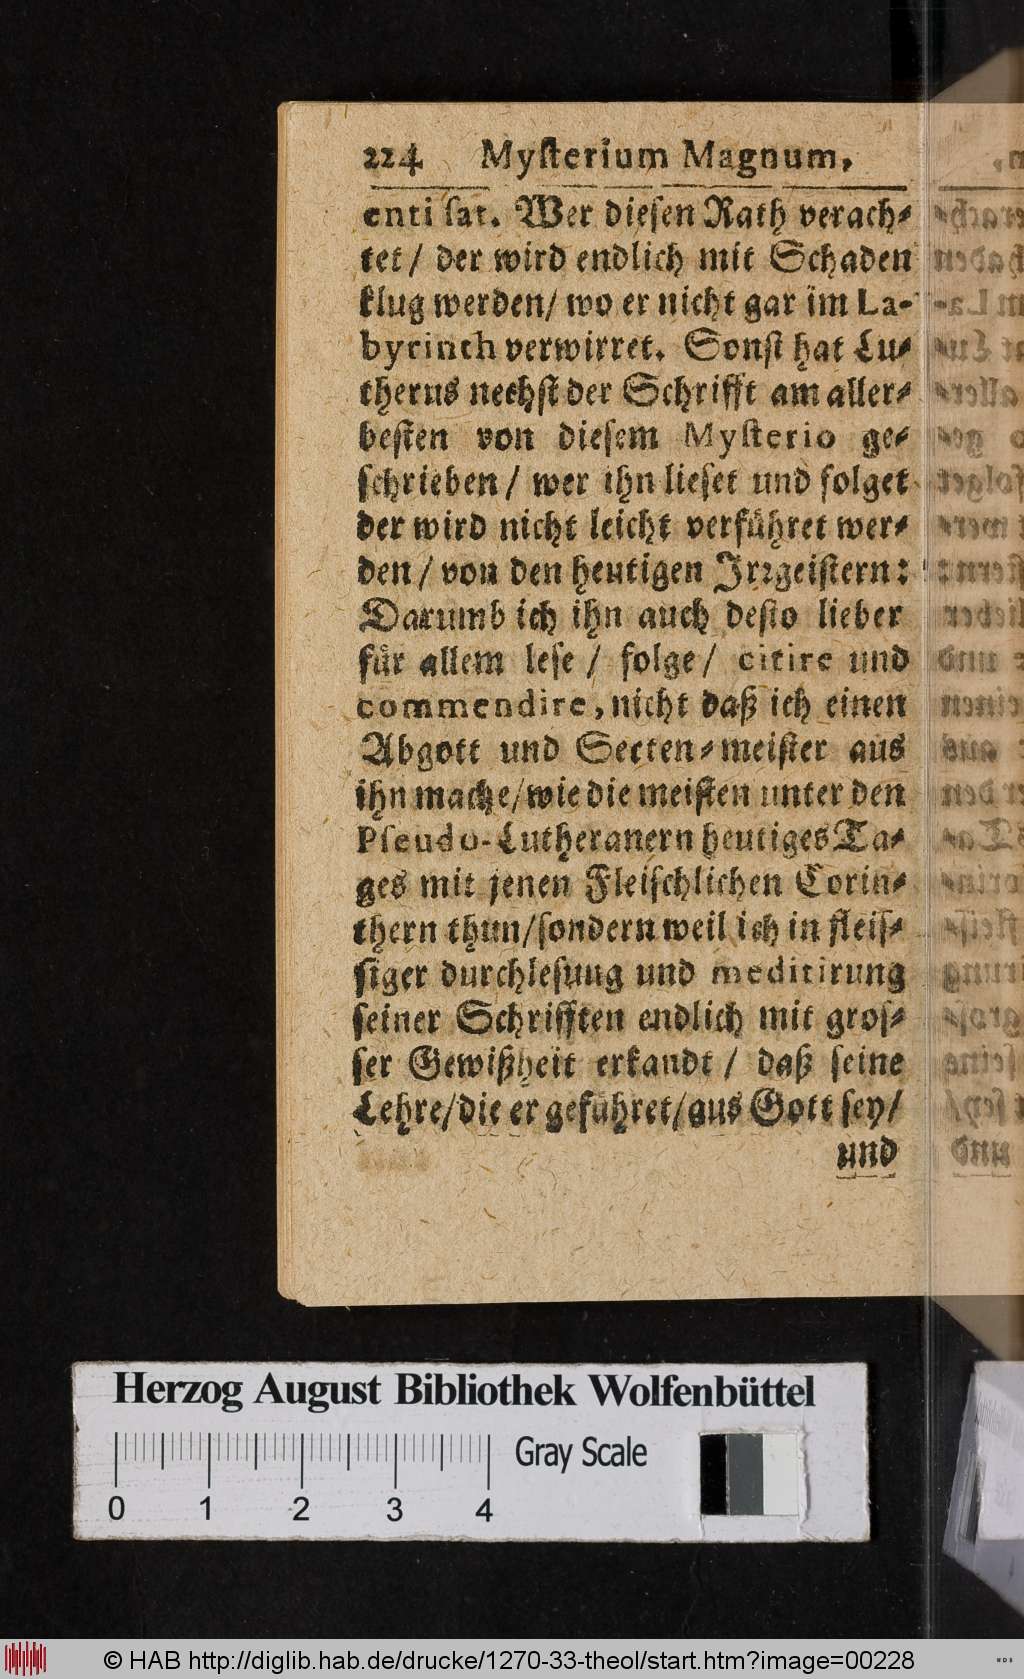 224 Myſterium Magnum,
enti ſat. Wer dieſen Rath verach⸗
tet / der wird endlich mit Schaden
klug werden/ wo er nicht gar im La-
byrinth verwirret. Sonſt hat Lu⸗
therus nechſt der Schrifft am aller⸗
beſten von dieſem Myſterio ge⸗
ſchrieben / wer ihn lieſet und folget
der wird nicht leicht verfuͤhret wer⸗
den / von den heutigen Jrꝛgeiſtern:
Darumb ich ihn auch deſto lieber
fuͤr allem leſe / folge / citire und
commendire, nicht daß ich einen
Abgott und Secten⸗meiſter aus
ihn mache/ wie die meiſten unter den
Pſeudo-Lutheranern heutiges Ta⸗
ges mit jenen Fleiſchlichen Corin⸗
thern thun/ ſondern weil ich in fleiſ⸗
ſiger durchleſung und meditirung
ſeiner Schrifften endlich mit groſ⸗
ſer Gewißheit erkandt / daß ſeine
Lehre/ die er gefuͤhret/ aus Gott ſey/
und
Herzog August Bibliothek Wolfenbüttel
Gray Scale
0 1 2 3 4
© HAB http://diglib.hab.de/drucke/1270-33-theol/start.htm?image=00228